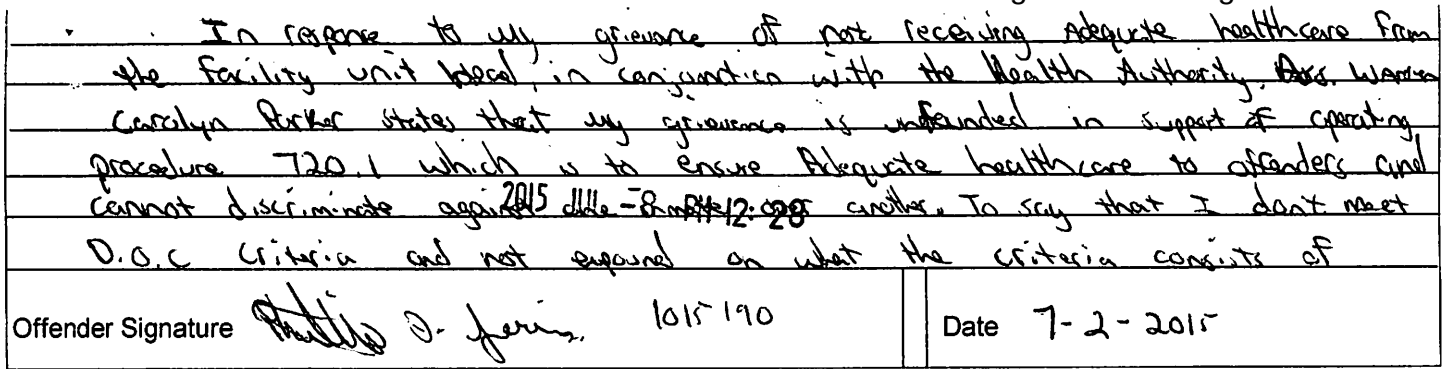 In response to my grievance of not receiving Adequate healthcare from
the facility unit head, in conjunction with the Health Authority. Warden
Carolyn Parker states that my grievance is unfounded in support of operating
procedure 720.1 which is to ensure Adequate healthcare to offenders and
cannot discriminate against 2015 -8 12:28 another. To say that I don't meet
D.O.C criteria and not expound on what the criteria consists of
Offender Signature 1015190 Date 7-2-2015